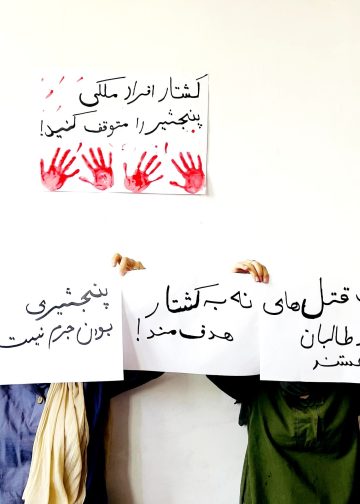 کشتار افراد ملکی
پنجشیر را متوقف کنید!
قتل‌های
طالبان
هستند
نه به کشتار
هدف مند!
پنجشیری
بودن جرم نیست